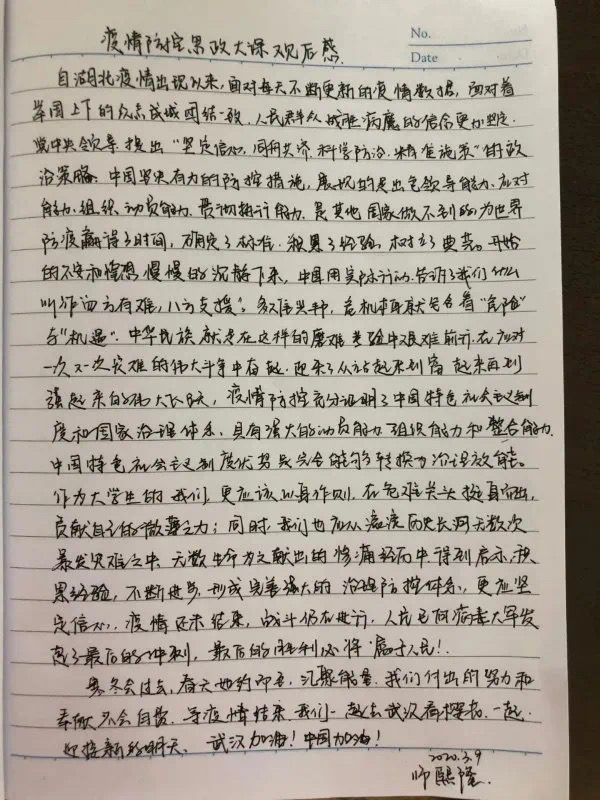 疫情防控思政大课观后感.
No.
Date
自湖北疫情出现以来,面对每天不断更新的疫情数据,面对着
举国上下的众志成城团结一致,人民群众战胜病魔的信念更加坚定.
党中央领导,提出"坚定信心,同舟共济,科学防治,精准施策"的政
治策略.中国坚决有力的防控措施,展现的是出色领导能力.应对
能力.组织动员能力.贯彻执行能力.是其他国家做不到的,为世界
防疫赢得了时间,确定了标准.积累了经验,树立了典范.开始
的不安和惶恐慢慢的沉静下来,中国用实际行动.告诉了我们什么
叫作"一方有难,八方支援".多难兴邦,危机本就包含着"危险"
与"机遇".中华民族就是在这样的磨难考验中艰难前行,在应对
一次又一次灾难的伟大斗争中奋起.迎来了从站起来到富起来再到
强起来的伟大飞跃,疫情防控充分证明了中国特色社会主义制
度和国家治理体系,具有强大的动员能力组织能力和整合能力.
中国特色社会主义制度优势是完全能够转换为治理效能.
作为大学生的我们,更应该以身作则,在危难关头挺身而出,
贡献自己的微薄之力;同时,我们也应从漫漫历史长河无数次
暴发灾难之中.无数生命为之献出的惨痛经历中,得到启示,积
累经验,不断进步,形成完善强大的治理防控体系,更应坚
定信心.疫情还未结束,战斗仍在进行,人民已向病毒大军发
起了最后的冲刺,最后的胜利必将属于人民!.
寒冬会过去,春天如约即至,汇聚能量.我们付出的努力和
奉献不会白费.等疫情结束,我们一起去武汉看樱花.一起
迎接新的明天. 武汉加油!中国加油!
2020.3.9
师熙隆.